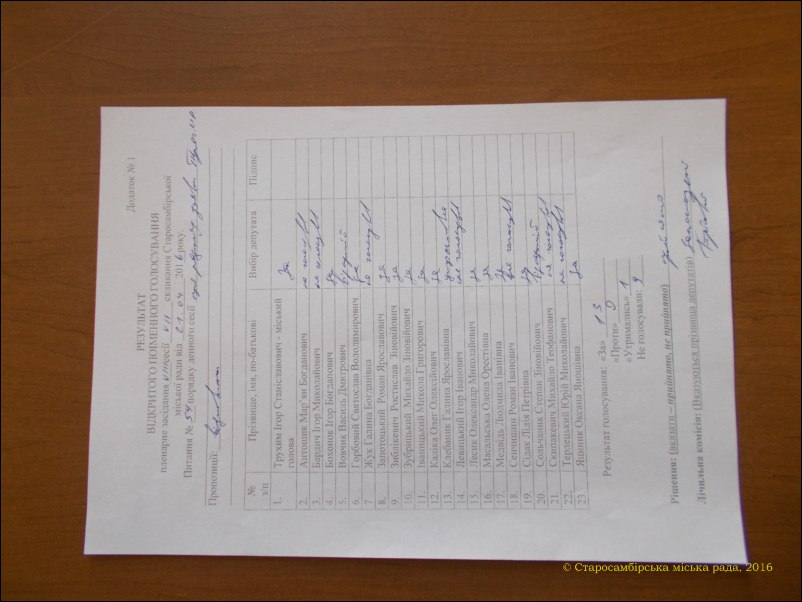 Додаток № 1
РЕЗУЛЬТАТ
ВІДКРИТОГО ПОІМЕННОГО ГОЛОСУВАННЯ
пленарне засідання VIII сесії VII скликання Старосамбірської
міської ради від 21.04 2016 року.
Питання № 54 порядку денного сесії
Пропозиції:
№ з/п Прізвище, імя, по-батькові Вибір депутата Підпис
1. Трухим Ігор Станіславович - міський голова За
2. Антошик Мар'ян Богданович не голосував
3. Бардич Ігор Миколайович не голосував
4. Бохонов Ігор Богданович За
5. Вовчик Василь Дмитрович
6. Горбовий Святослав Володимирович За
7 Жук Галина Богданівна не голосувал
8. Запотоцький Роман Ярославович За
9. Зиблікевич Ростислав Зіновійович За
10. Зубрицький Михайло Зіновійович За
11. Іваницька Марія Григорівна За
12. Кашка Олег Олексійович За
13. Клубовик Галина Ярославівна
14. Левицький Ігор Іванович не голосував
15. Лесик Олександр Миколайович За
16. Масальська Олена Орестівна За
17. Медвідь Людмила Іванівна За
18. Сенчишин Роман Іванович не голосував
19. Сідак Лідія Петрівна За
20. Солочаник Степан Зіновійович
21. Скишкевич Михайло Теофанович не голосував
22. Терлецький Юрій Миколайович не голосував
23. Яциник Оксана Яношівна За
Результат голосування: «За» 13
«Проти» 0
«Утримались» 1
Не голосували: 9
Рішення: (вказати – прийнято, не прийнято) прийнято
Лічильна комісія: (Вказуються прізвища депутатів)
© Старосамбірська міська рада, 2016